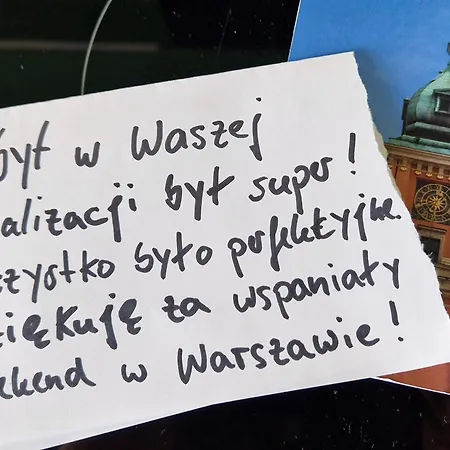 był w Waszej
alizacji był super!
zystko było perfekcyjne.
iękuję za wspaniały
ekend w Warszawie!